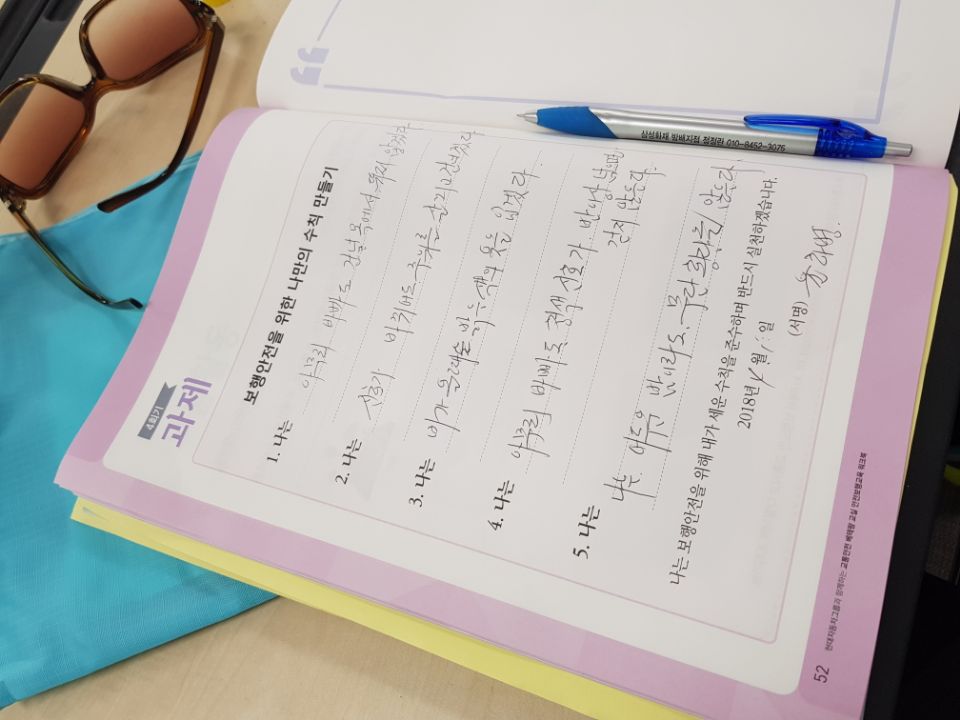 4학기
과제
보행안전을 위한 나만의 수칙 만들기
1. 나는 아무리 바빠도 건널목에서 뛰지 않겠다
2. 나는 신호가 바뀌어도 주위를 살피고 건너겠다
3. 나는 비가 올때는 밝은색의 옷을 입겠다.
4. 나는 아무리 바빠도 청색 신호가 반이상 남으면
건너지 않는다.
5. 나는
나는 어두운 밤이라도 무단 횡단을 않는다
나는 보행안전을 위해 내가 세운 수칙을 준수하며 반드시 실천하겠습니다.
2018년 월 일
(서명)
52 현대자동차그룹과 함께하는 교통안전 베테랑 교실 안전보행교육 워크북
삼성화재 정정란 010-8452-3076